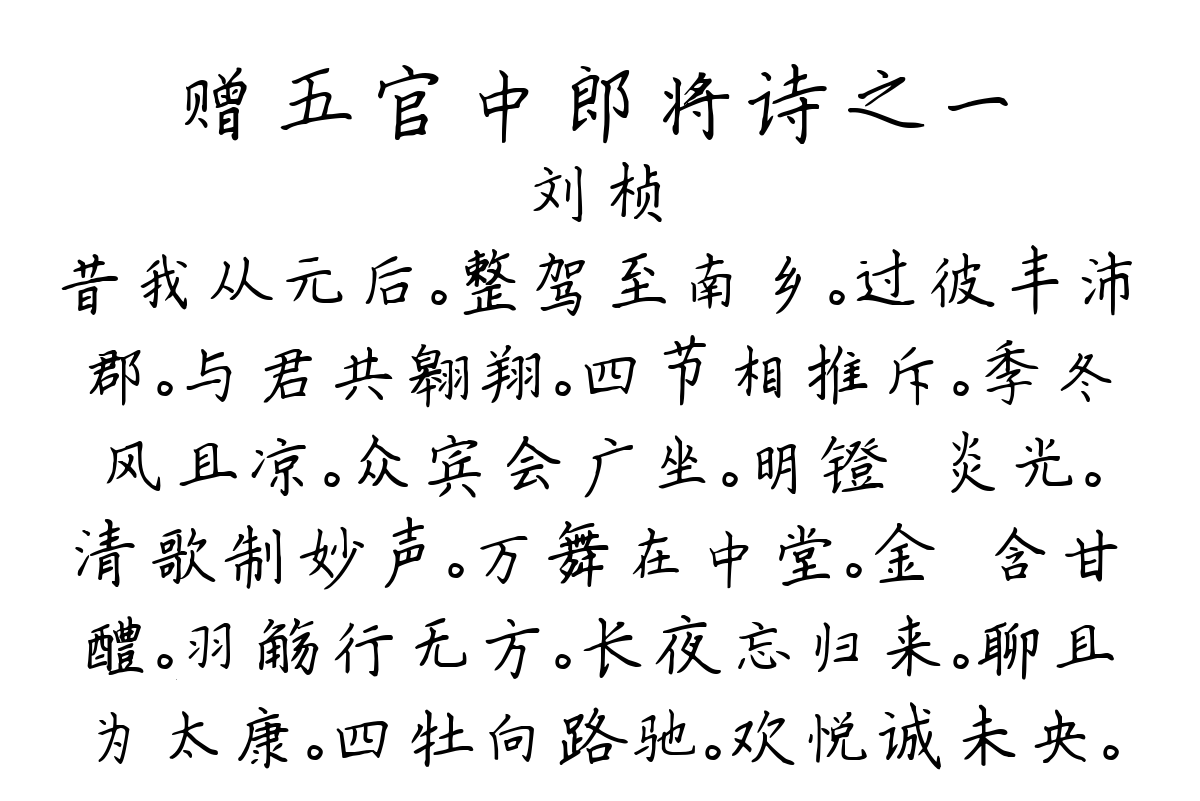 赠五官中郎将诗之一
刘桢
昔我从元后。整驾至南乡。过彼丰沛
郡。与君共翱翔。四节相推斥。季冬
风且凉。众宾会广坐。明镫 炎光。
清歌制妙声。万舞在中堂。金 含甘
醴。羽觞行无方。长夜忘归来。聊且
为太康。四牡向路驰。欢悦诚未央。